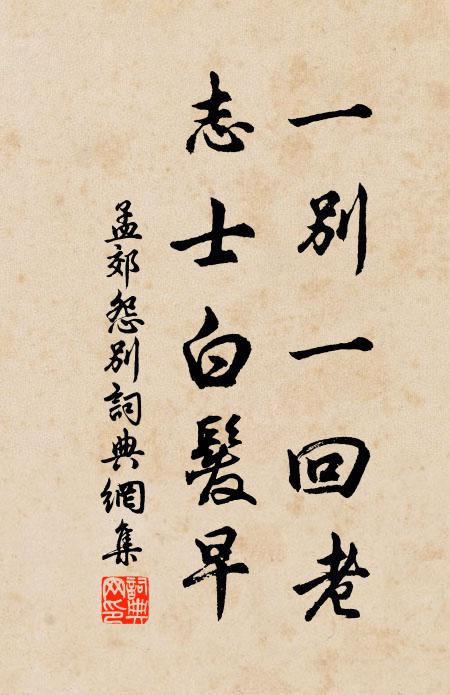 一别一回老
志士白髮早
孟郊怨别詞典網集
詞典
网印